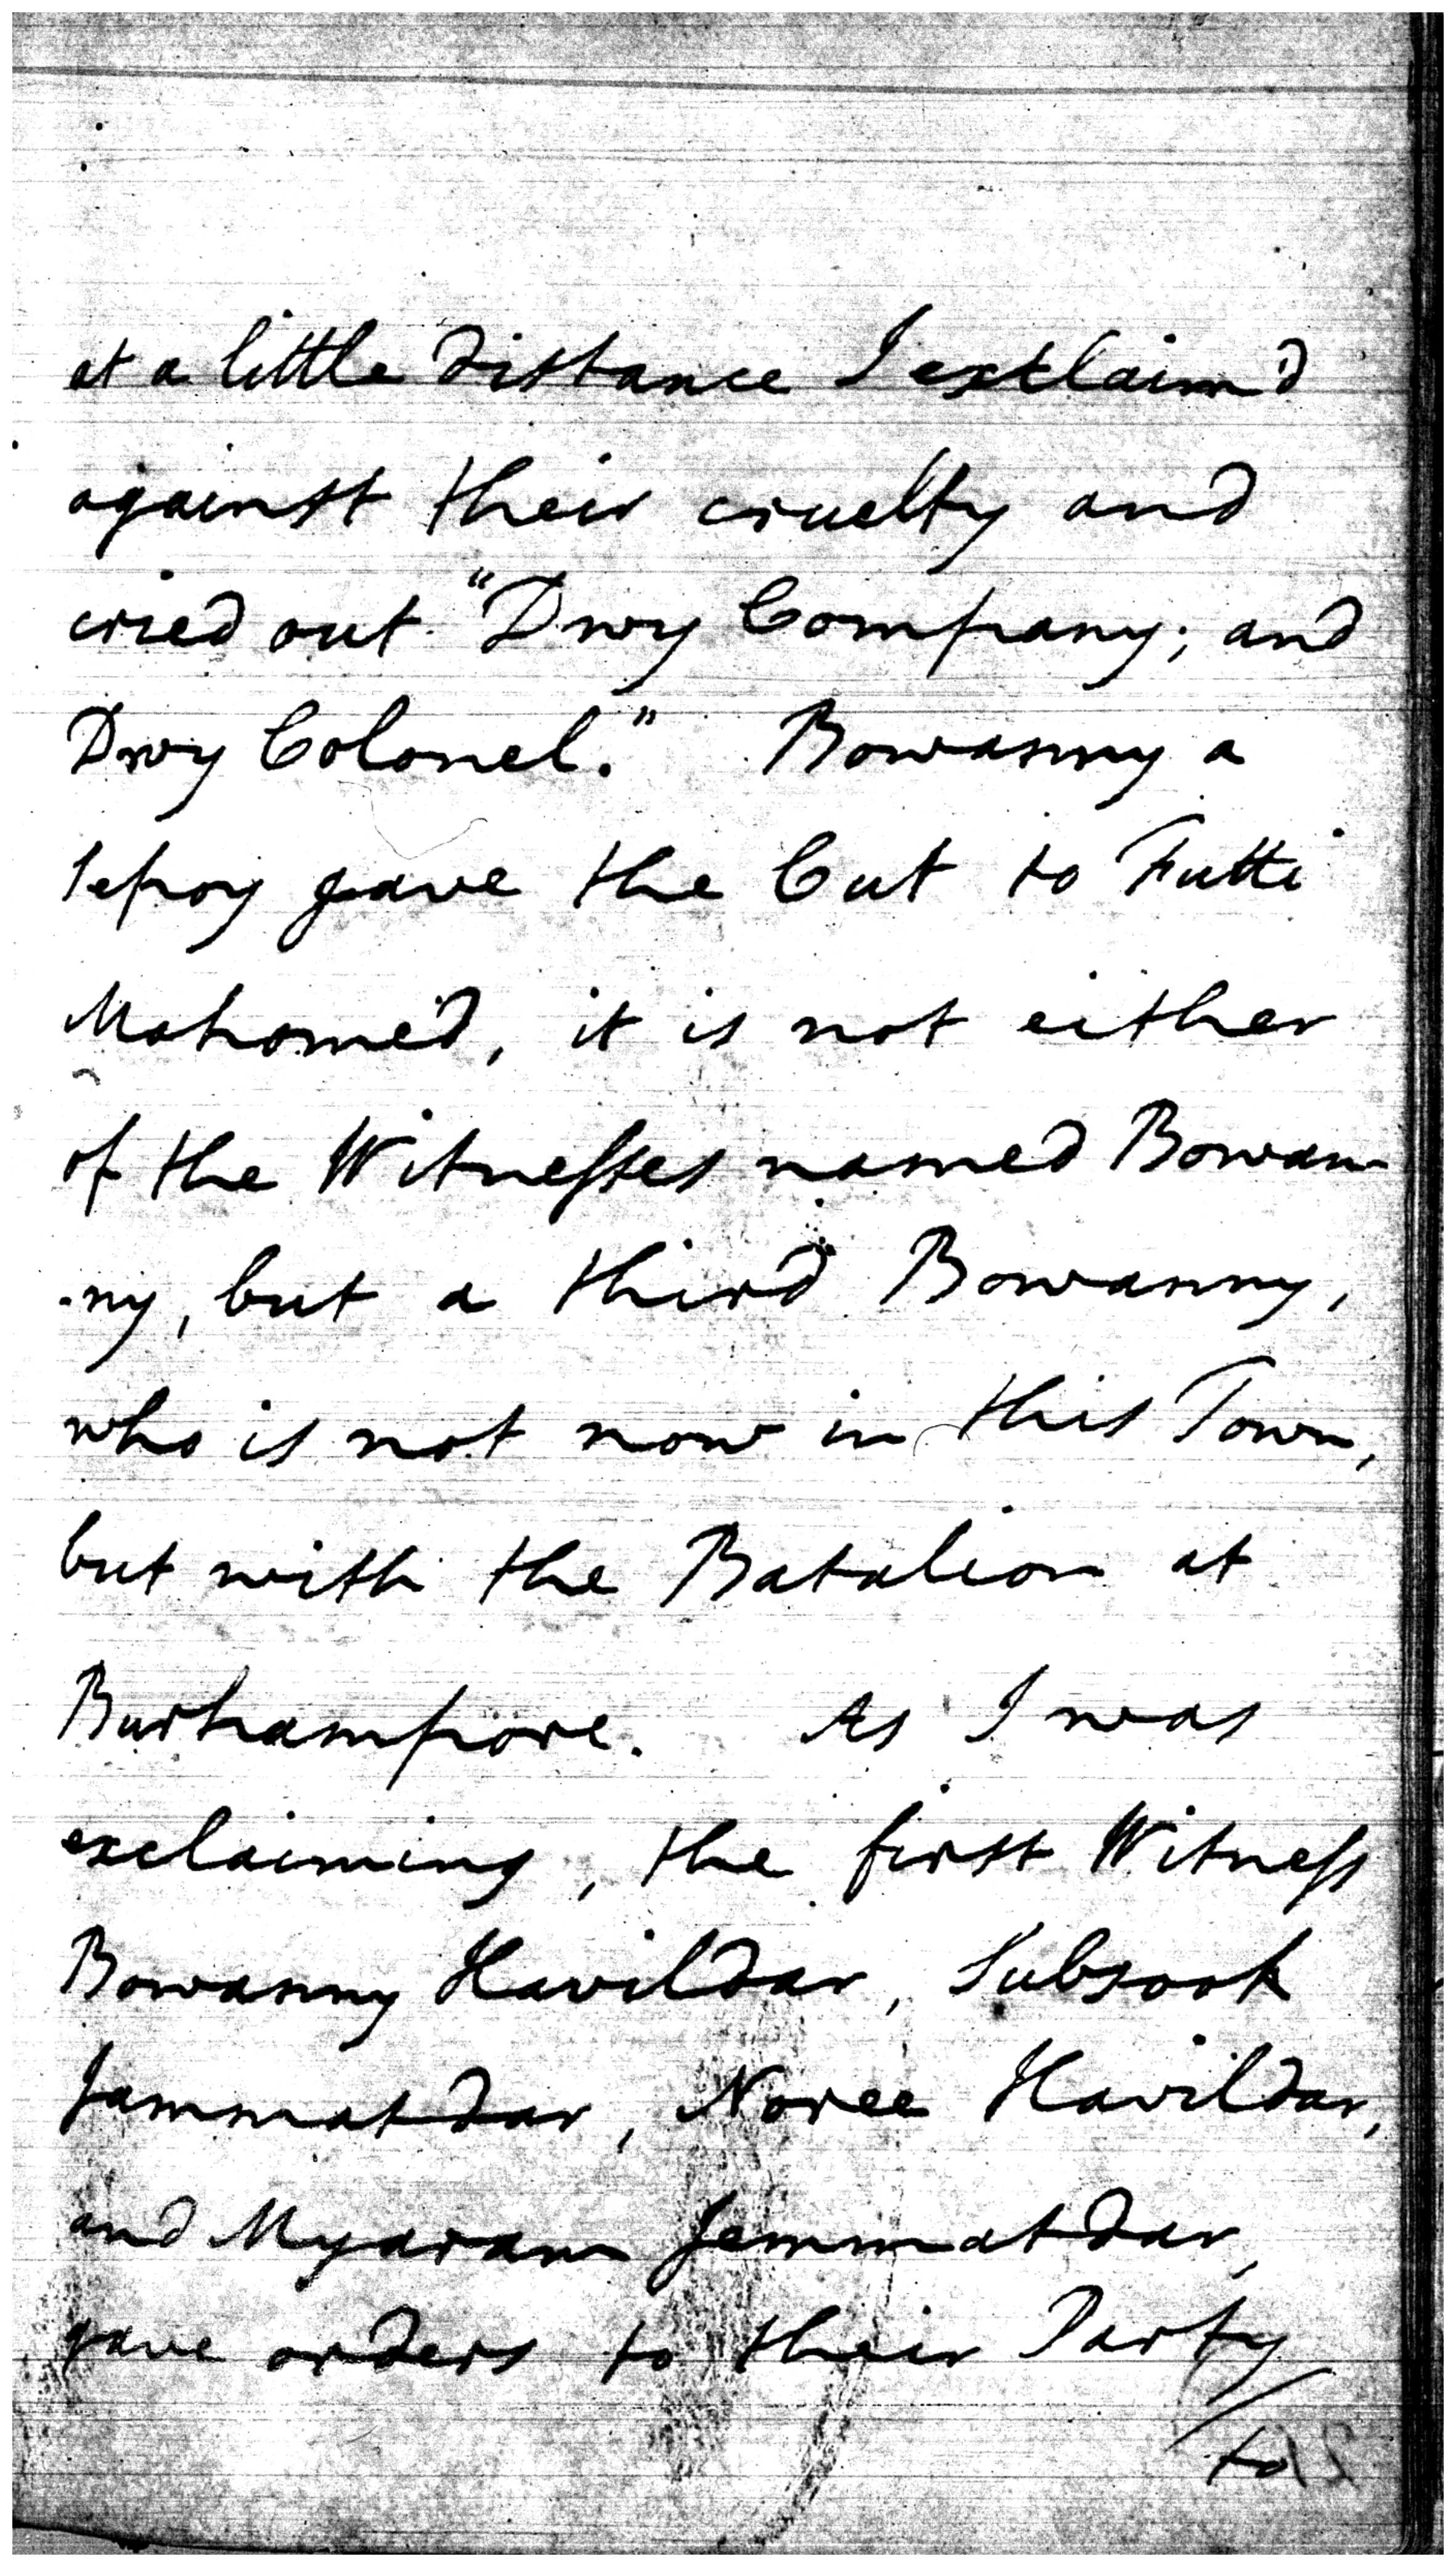 at a little distance I exclaim'd
against their cruelty and
cried out "Dwy Company; and
Dwy Colonel." Bowanny a
sepoy gave the Cut to Futti
Mahomed, it is not either
of the Witnesses named Bowan
-ny, but a third Bowanny,
who is not now in this Town,
but with the Batalion at
Burhampore. As I was
exclaiming, the first Witness
Bowanny Havildar, Subsook
Jammatdar, Noree Havildar,
and Myaram Jemmatdar,
gave orders to their Party
to